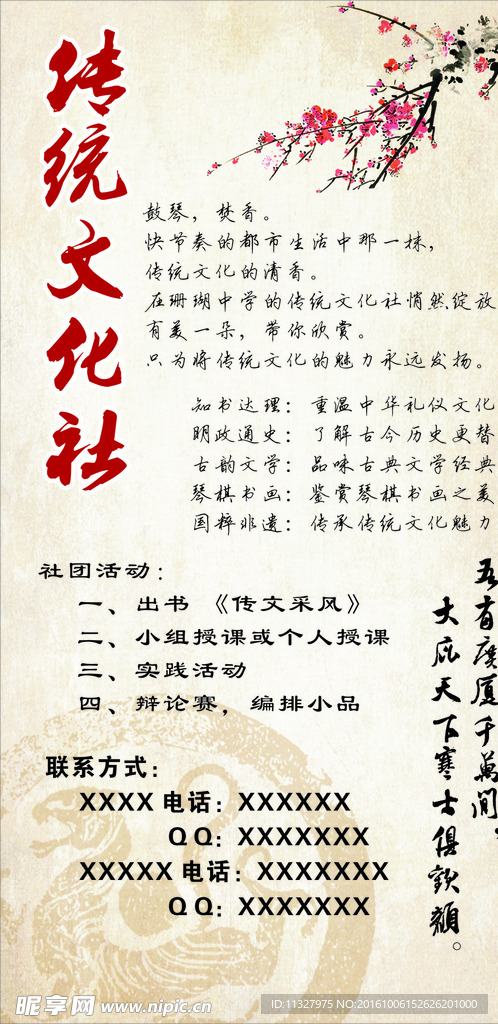 传统文化社
鼓琴，焚香。
快节奏的都市生活中那一抹，
传统文化的清香。
在珊瑚中学的传统文化社悄然绽放
有美一朵，带你欣赏。
只为将传统文化的魅力永远发扬。
知书达理：重温中华礼仪文化
明政通史：了解古今历史更替
古韵文学：品味古典文学经典
琴棋书画：鉴赏琴棋书画之美
国粹非遗：传承传统文化魅力
社团活动：
一、出书 《传文采风》
二、小组授课或个人授课
三、实践活动
四、辩论赛，编排小品
五有廣厦千萬间，
大庇天下寒士俱欢颜。
联系方式：
XXXX 电话：XXXXXX
QQ：XXXXXXX
XXXXX 电话：XXXXXXX
QQ：XXXXXXX
昵享网 www.nipic.cn
ID:11327975 NO:20161006152626201000